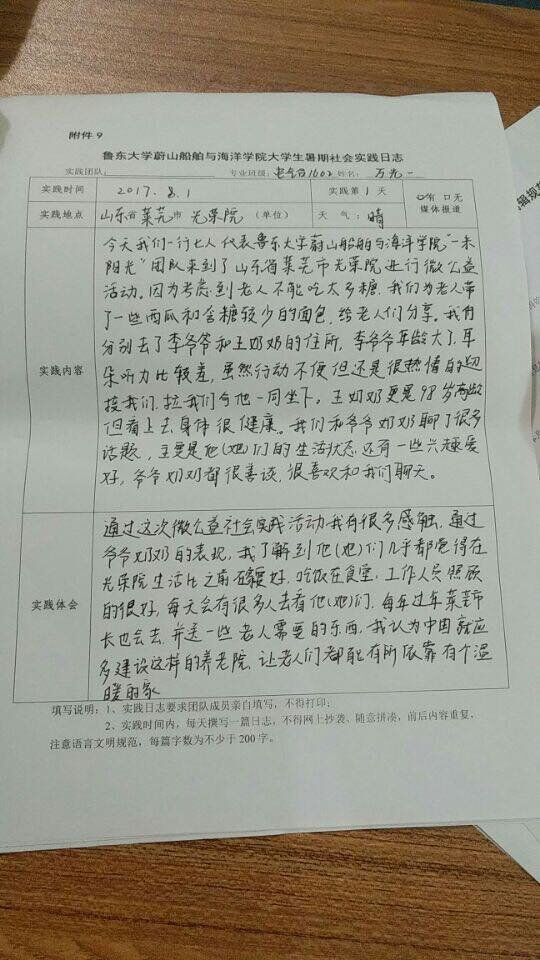 附件 9
鲁东大学蔚山船舶与海洋学院大学生暑期社会实践日志
实践团队: 专业班级: 1602 姓名: 万光一
实践时间 2017.8.1 实践第 1 天 口有 口无
媒体报道
实践地点 山东省莱芜市 光荣院 (单位) 天 气: 晴
实践内容
今天我们一行七人代表鲁东大学蔚山船舶与海洋学院"一米
阳光"团队来到了山东省莱芜市光荣院进行微公益
活动。因为考虑到老人不能吃太多糖,我们为老人带
了一些西瓜和含糖较少的面包,给老人们分享。我们
分别去了李爷爷和王奶奶的住所,李爷爷年龄大了,耳
朵听力比较差,虽然行动不便但还是很热情的迎
接我们,拉我们和他一同坐下。王奶奶更是98岁高龄
但看上去身体很健康。我们和爷爷奶奶聊了很多
话题,主要是他(她)们的生活状态还有一些兴趣爱
好,爷爷奶奶都很善谈,很喜欢和我们聊天。
实践体会
通过这次微公益社会实践活动我有很多感触,通过
爷爷奶奶的表现,我了解到他(她)们几乎都觉得在
光荣院生活比之前在家好,吃饭在食堂,工作人员照顾
的很好,每天会有很多人去看他(她)们,每年过年莱芜市
长也会去,并送一些老人需要的东西,我认为中国就应
多建设这样的养老院,让老人们都能有所依靠有个温
暖的家
填写说明:1、实践日志要求团队成员亲自填写,不得打印;
2、实践时间内,每天撰写一篇日志,不得网上抄袭、随意拼凑,前后内容重复,
注意语言文明规范,每篇字数为不少于 200 字。